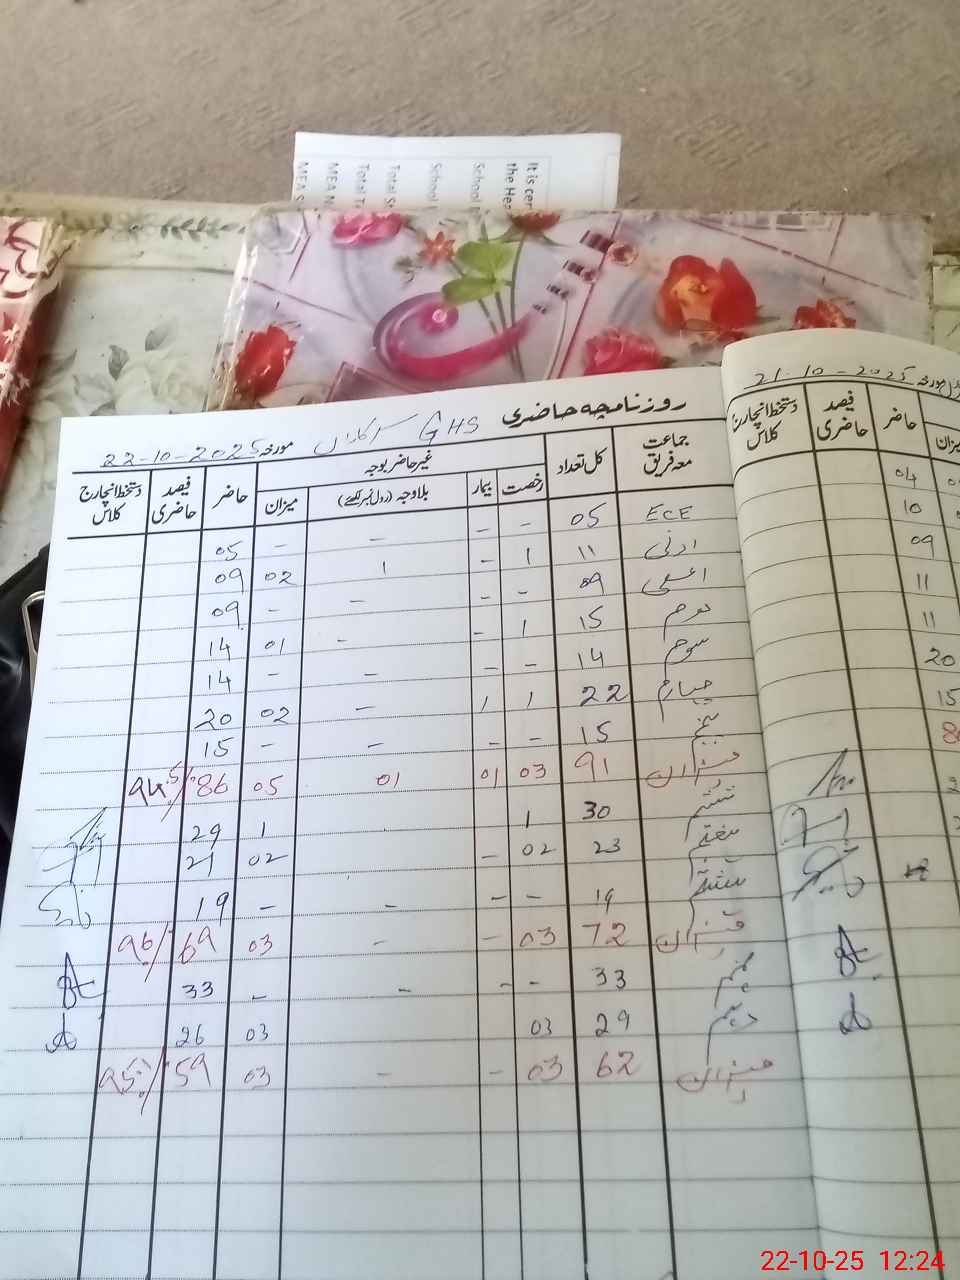 It is cer
the Hea
School
School
Total S
Total T
MEA N
MEA S
روزنامچہ حاضری GHS
مورخہ 22-10-2025
جماعت معہ فریق کل تعداد غیر حاضر بوجہ حاضر فیصد حاضری دستخط انچارج کلاس
رخصت بیمار بلاوجہ (رول نمبر لکھئے) میزان
ECE 05 - - - - 05
ادنیٰ 11 1 - 1 02 09
اعلیٰ 09 - - - - 09
دوم 15 1 - - 01 14
سوم 14 - - - - 14
چہارم 22 1 1 - 02 20
پنجم 15 - - - - 15
میزان 91 03 01 01 05 86 94.5%
ششم 30 1 1 29
ہفتم 23 02 - 02 21
ہشتم 19 - - - - 19
میزان 72 03 - - 03 69 96%
نہم 33 - - - - 33
دہم 29 03 03 26
میزان 62 03 - - 03 59
مورخہ 21-10-2025
میزان حاضر فیصد حاضری دستخط انچارج کلاس
04
10
09
11
11
20
15
22-10-25 12:24